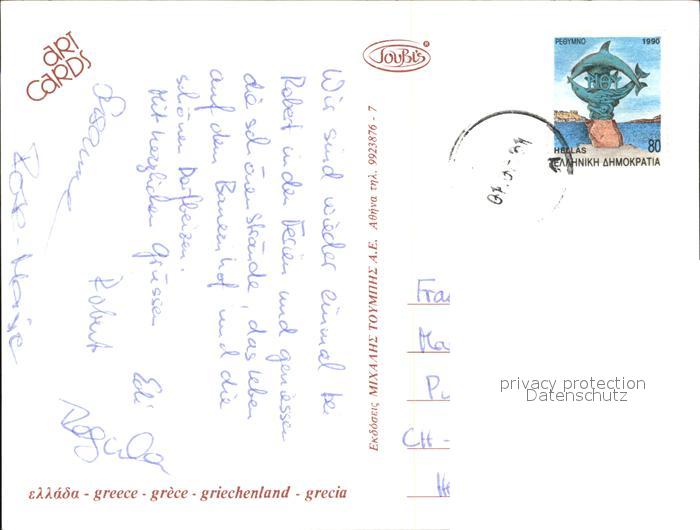 ART
CARDS
TOUBI'S ®
ΡΕΘΥΜΝΟ 1990
HELLAS 80
ΕΛΛΗΝΙΚΗ ΔΗΜΟΚΡΑΤΙΑ
Wir sind wieder einmal bei
Robert in den Ferien und geniessen
die schönen Strände, das Leben
auf dem Bauernhof und die
schönen Dorfbeizen.
Mit herzlichen Grüssen
Edi
Susanne Robert Regula
Rose-Marie
Εκδόσεις ΜΙΧΑΛΗΣ ΤΟΥΜΠΗΣ Α.Ε. Αθήνα τηλ. 9923876 - 7
Fra
Ma
Pu
CH -
privacy protection
Datenschutz
ελλάδα - greece - grèce - griechenland - grecia